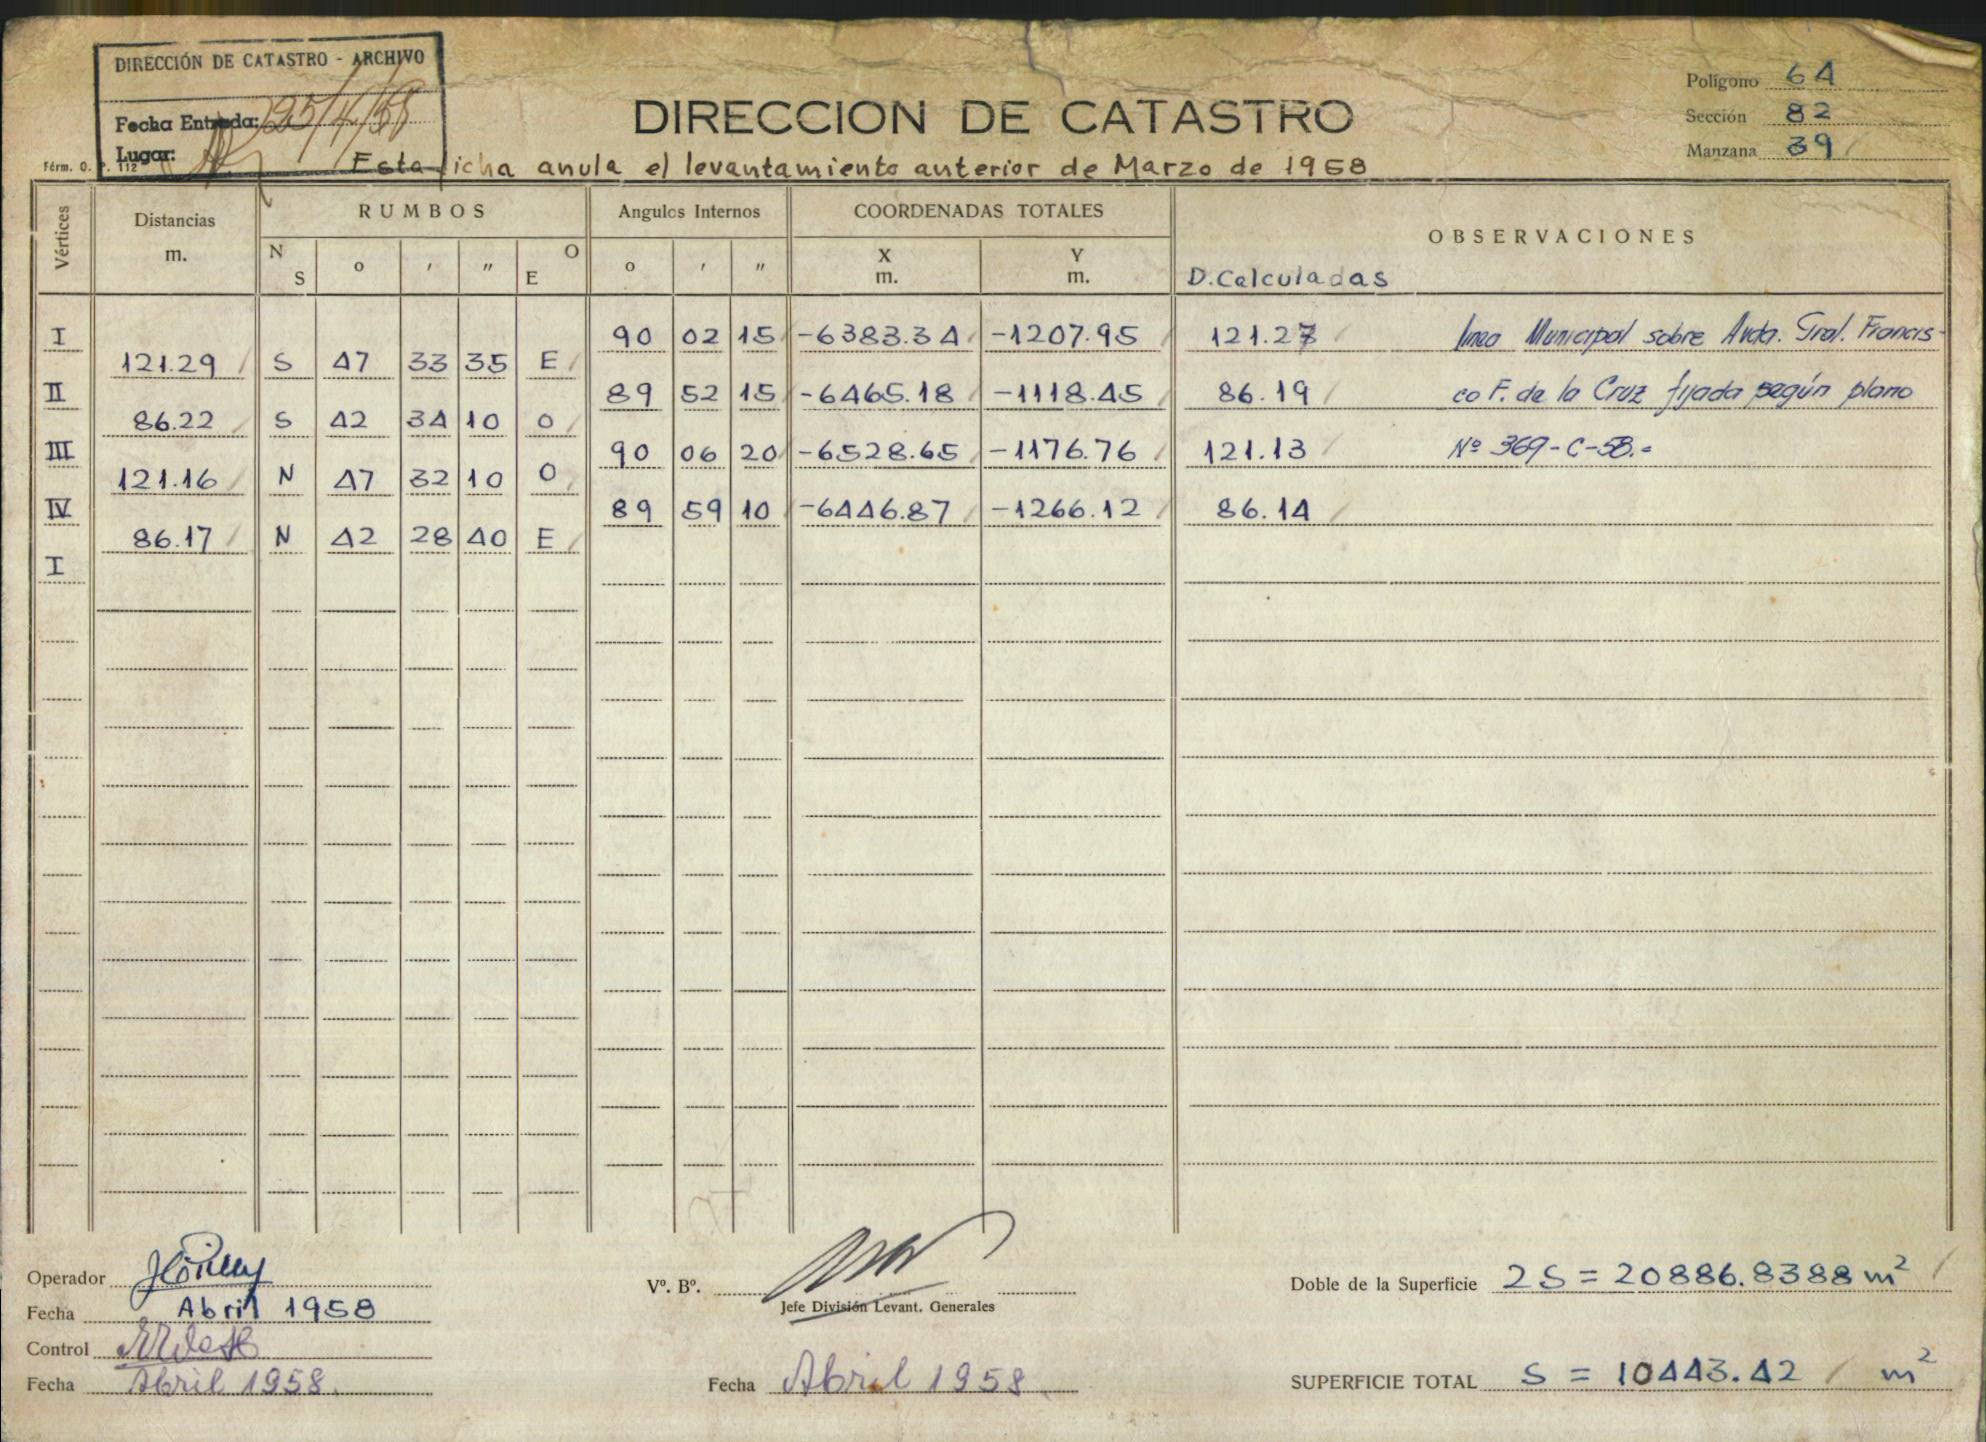 DIRECCIÓN DE CATASTRO - ARCHIVO
Fecha Entrada: 25/4/58
Lugar:
Fórm. O. P. 112
DIRECCION DE CATASTRO
Esta ficha anula el levantamiento anterior de Marzo de 1958
Polígono 64
Sección 82
Manzana 39
Vértices Distancias m. RUMBOS Angulos Internos COORDENADAS TOTALES OBSERVACIONES
N S o ' " E O o ' " X m. Y m. D. Calculadas
I 90 02 15 -6383.34 -1207.95 121.27 línea Municipal sobre Avda. Gral. Francis-
121.29 S 47 33 35 E
II 89 52 15 -6465.18 -1118.45 86.19 co F. de la Cruz fijada según plano
86.22 S 42 34 10 O
III 90 06 20 -6528.65 -1176.76 121.13 Nº 369-C-58.-
121.16 N 47 32 10 O
IV 89 59 10 -6446.87 -1266.12 86.14
86.17 N 42 28 40 E
I
Operador
Fecha Abril 1958
Control
Fecha Abril 1958.
Vº. Bº.
Jefe División Levant. Generales
Fecha Abril 1958.
Doble de la Superficie 2S = 20886.8388 m²
SUPERFICIE TOTAL S = 10443.42 m²